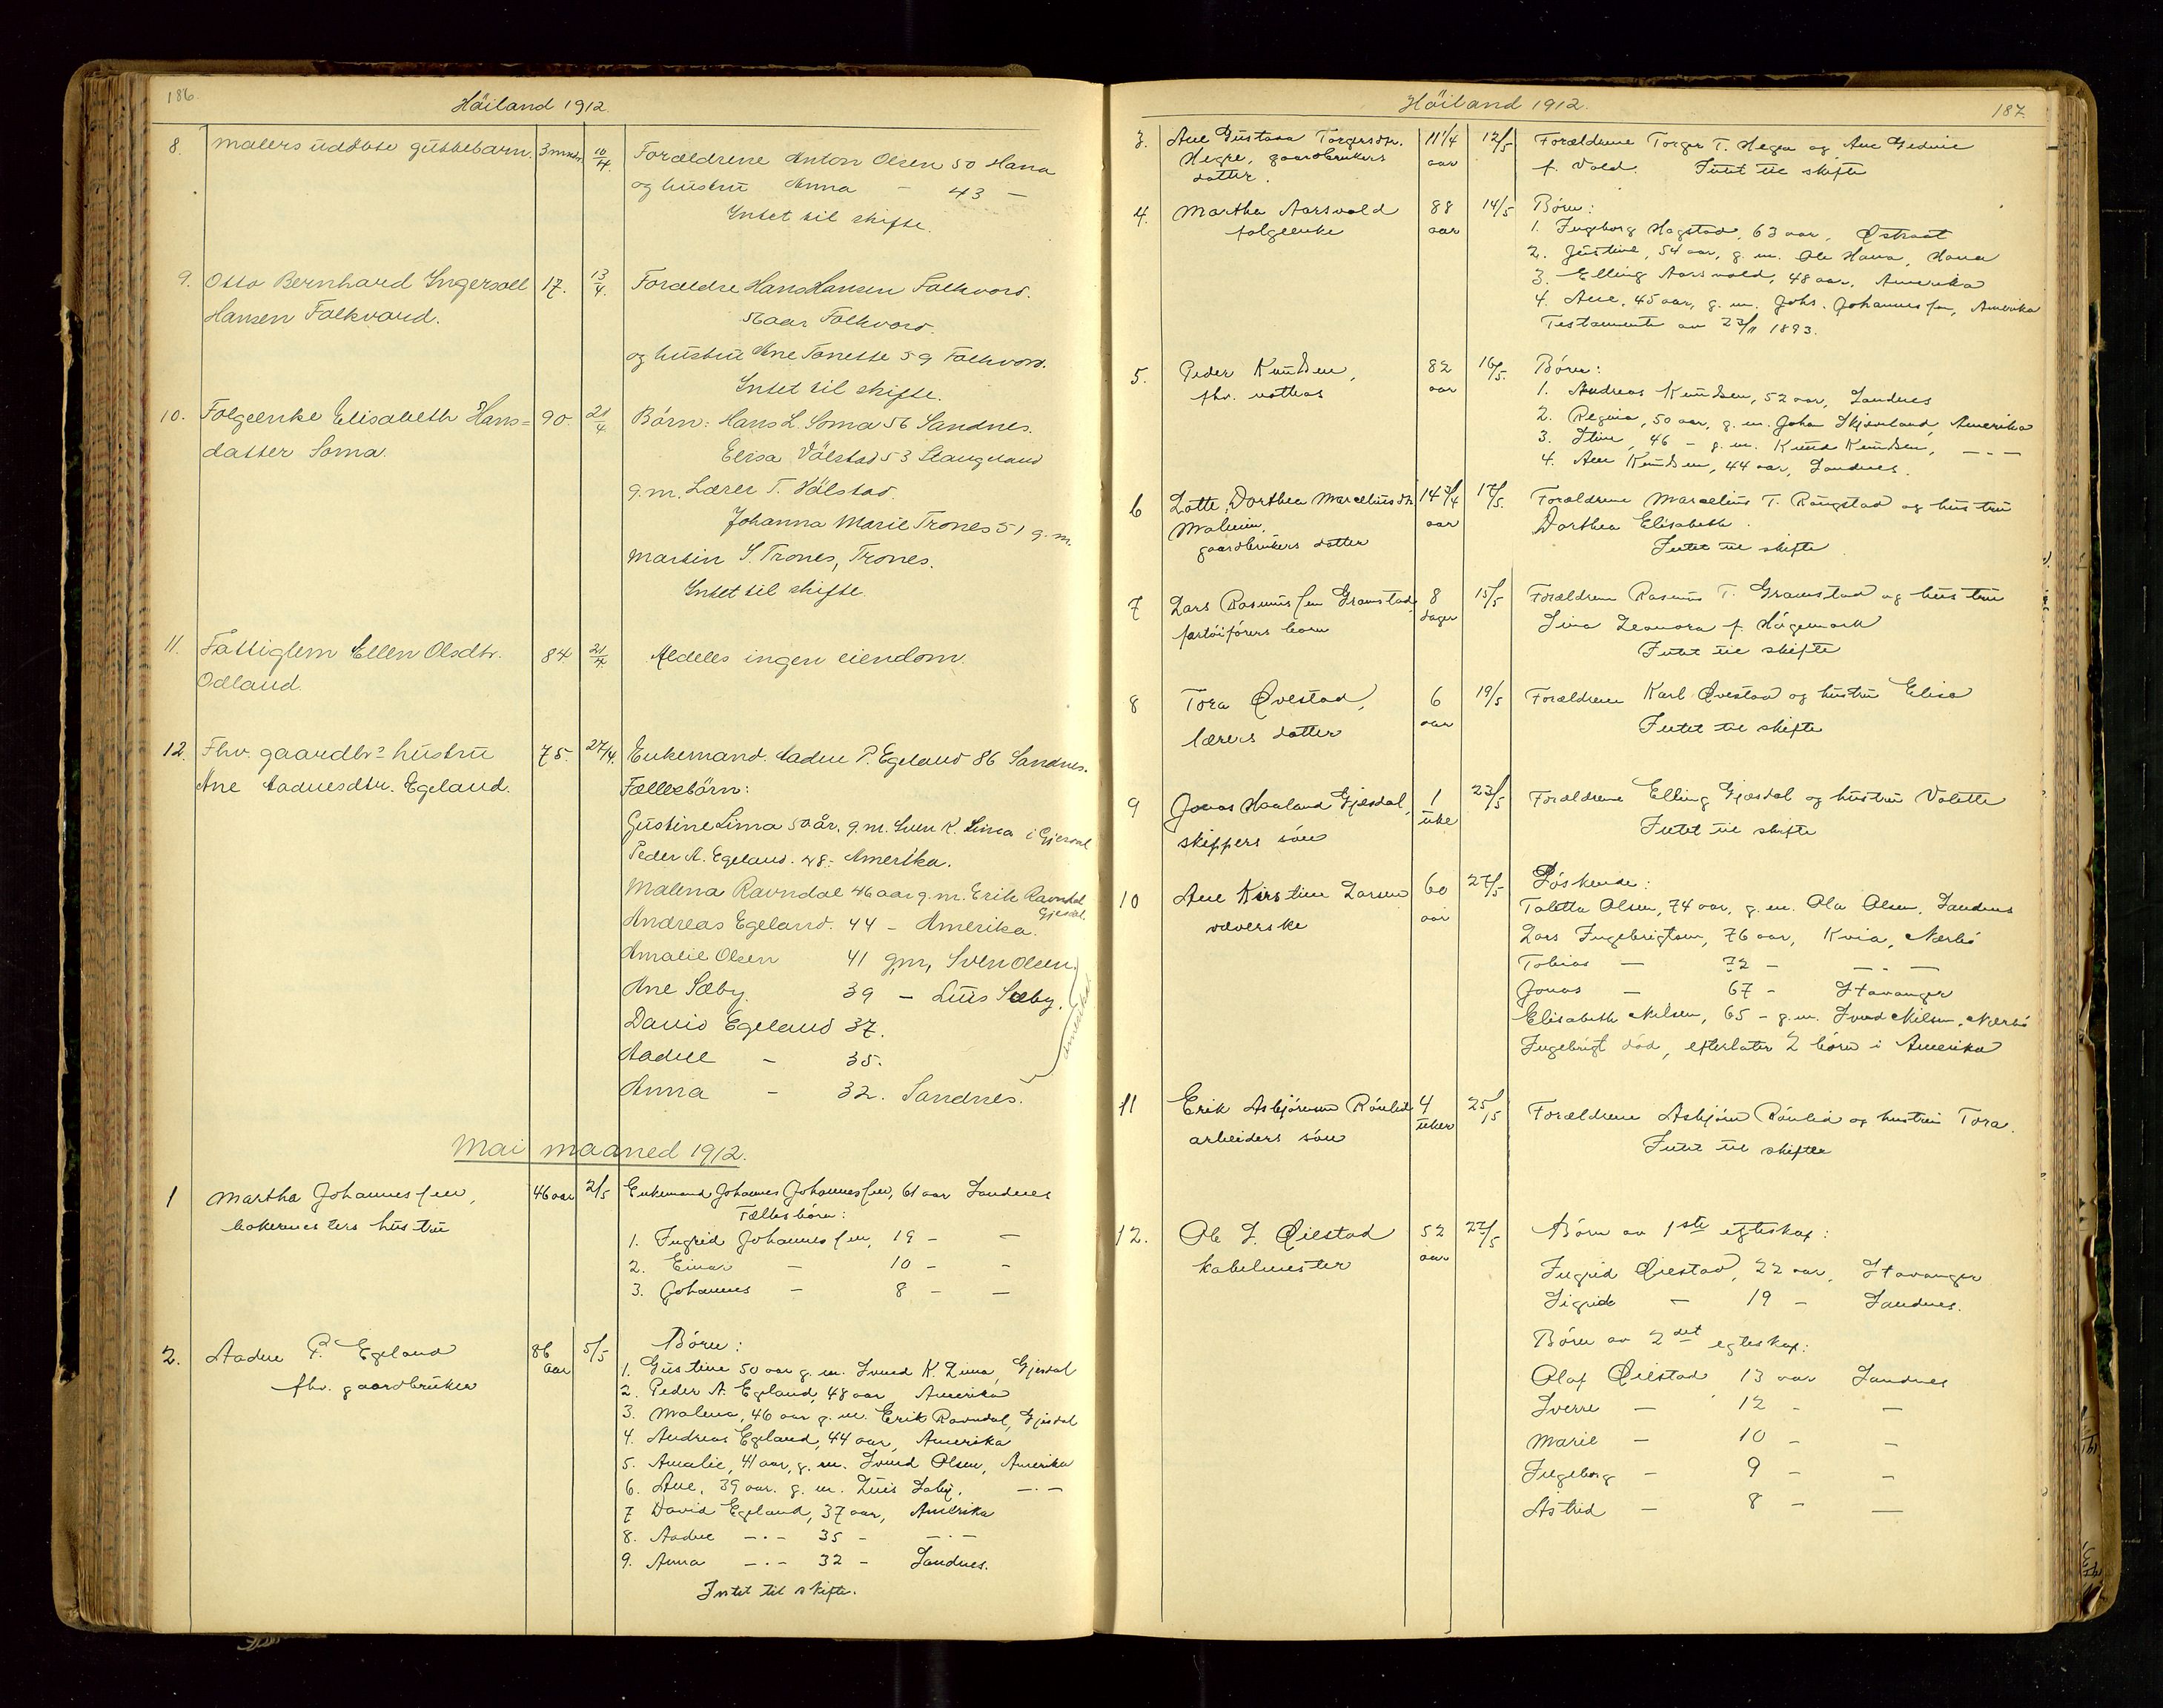 186.
Höiland 1912.
8. Malers udöbte guttebarn. 3 mndr. 10/4. Forældrene Anton Olsen 50 Hana
og hustru Anna - 43 -
Intet til skifte.
9. Otto Bernhard Ingersoll 17. 13/4. Forældre Hans Hansen Folkvord.
Hansen Folkvord. 56 aar Folkvord.
og hustru Ane Tonette 59 Folkvord.
Intet til skifte.
10. Folgeenke Elisabeth Hans= 90. 21/4. Börn: Hans L. Soma 56 Sandnes.
datter Soma. Elisa Vålstad 53 Slaugeland
g.m. Lærer T. Vålstad.
Johanna Marie Trones 51 g.m.
Martin S. Trones, Trones.
Intet til skifte.
11. Fattiglem Ellen Olsdtr. 84. 21/4. Aldeles ingen eiendom.
Odland.
12. Fhv. gaardbr's hustru 75. 27/4. Enkemand. Aadne P. Egeland 86 Sandnes.
Ane Aadnesdtr. Egeland. Fællesbörn:
Gustine Lima 50 år, g.m. Sven K. Lima i Gjesdal
Peder A. Egeland. 48.- Amerika.
Malena Ravndal 46 aar g.m. Erik Ravndal
Gjesdal.
Andreas Egeland. 44 - Amerika.
Amalie Olsen 41 g.m, Sven Olsen.
Ane Sæby. 39 - Luis Sæby.
David Egeland 37.
Aadne - 35.
Amerika
Anna - 32. Sandnes.
Mai maaned 1912.
1 Martha Johannessen, 46 aar 2/5 Enkemand Johannes Johannessen, 61 aar Sandnes
bakermesters hustru Fællesbörn:
1. Ingrid Johannessen, 19 - -
2. Einar - 10 - -
3. Johannes - 8 - -
2. Aadne P. Egeland 86 aar 5/5 Börn:
fhv. gaardbruker 1. Gustine 50 aar g. m. Svend K. Lima, Gjesdal
2. Peder A. Egeland, 48 aar, Amerika
3. Malena, 46 aar g. m. Erik Ravndal, Gjesdal
4. Andreas Egeland, 44 aar, Amerika
5. Amalie, 41 aar, g. m. Svend Olsen, Amerika
6. Ane, 39 aar. g. m. Luis Saby. -.-
7 David Egeland, 37 aar, Amerika
8. Aadne -.- 35 - -.-
9. Anna -.- 32 - Sandnes.
Intet til skifte.
187.
Höiland 1912.
3. Ane Gustava Torgersdtr. 11 1/4 aar 12/5 Forældrene Torger T. Hegre og Ane Gedine
Hegre, gaardbrukers f. Vold. Intet til skifte
datter.
4. Martha Aarsvold 88 aar 14/5 Börn:
folgeenke 1. Ingeborg Hogstad, 63 aar, Østraat
2. Justine, 54 aar, g. m. Ole Hana, Hana
3. Elling Aarsvold, 48 aar, Amerika
4. Ane, 45 aar, g. m. Johs. Johannessen, Amerika
Testamente av 23/11 1893.
5. Peder Knudsen, 82 aar 16/5. Börn:
fhv. matros 1. Andreas Knudsen, 52 aar, Sandnes
2. Regina, 50 aar, g. m. Johan Skjeveland, Amerika
3. Stine, 46 - g. m. Knud Knudsen, -.-
4. Ane Knudsen, 44 aar, Sandnes.
6 Lotte Dorthea Marceliusdtr. 14 3/4 aar 17/5. Forældrene Marcelius T. Raugstad og hustru
Malmin, Dorthea Elisabeth.
gaardbrukers datter Intet til skifte
7 Lars Rasmussen Gramstad, 8 dager 15/5 Forældrene Rasmus T. Gramstad og hustru
fartöiförers barn Sina Leonora f. Högemark
Intet til skifte
8 Tora Qvestad, 6 aar 19/5 Forældrene Karl Qvestad og hustru Elisa
lærers datter Intet til skifte
9 Jonas Haaland Gjesdal, 1 uke 23/5 Forældrene Elling Gjesdal og hustru Valette
skippers sön Intet til skifte
10 Ane Kirstine Larsen 60 aar 27/5 Söskende:
væverske Taletta Olsen, 74 aar, g. m. Ola Olsen, Sandnes
Lars Ingebrigtsen, 76 aar, Kvia, Nærbö
Tobias - 72 - -.-
Jonas - 67 - Stavanger
Elisabeth Nilsen, 65 - g. m. Svend Nilsen, Nærbö
Ingebrigt död, efterlater 2 börn i Amerika
11 Erik Asbjörnsen Rönlid 4 uker 25/5 Forældrene Asbjörn Rönlid og hustru Tora.
arbeiders sön Intet til skifte
12. Ole J. Qilestad 52 aar 27/5 Börn av 1ste egteskap:
kabelmester Ingrid Qilestad, 22 aar, Stavanger
Sigrid - 19 - Sandnes.
Börn av 2det egteskap:
Olaf Qilestad 13 aar Sandnes
Sverre - 12 - -
Marie - 10 - -
Ingeborg - 9 - -
Astrid - 8 - -